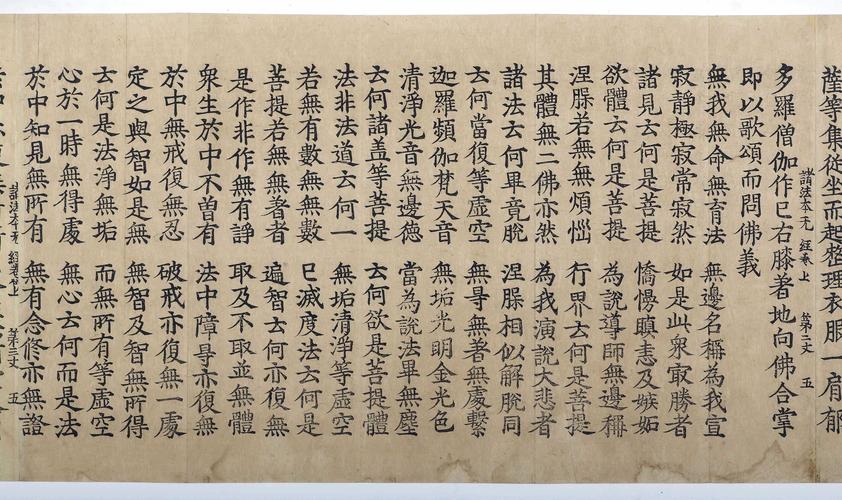 薩等集從坐而起整理衣服一肩郁
諸法本无 經卷上 第二丈 五
多羅僧伽作已右膝著地向佛合掌
即以歌頌而問佛義
無我無命無育法 無邊名稱為我宣
寂静極寂常寂然 如是此衆寂勝者
諸見去何是菩提 憍慢瞋恚及嫉妬
欲體去何是菩提 為說導師無邊稱
涅槃若無無煩惱 行界去何是菩提
其體無二佛亦然 為我演說大悲者
諸法去何畢竟脫 涅槃相似解脫同
去何當復等虛空 無㝵無著無處繫
迦羅頻伽梵天音 無垢光明金光色
清淨光音無邊德 當為說法畢無塵
去何諸盖等菩提 去何欲是菩提體
法非法道去何一 無垢清淨等虛空
若無有數無無數 已滅度法去何是
菩提若無無著者 遍智去何亦復無
是作非作無有諍 取及不取並無體
衆生於中不曽有 法中障㝵亦復無
於中無戒復無忍 破戒亦復無一處
定之與智如是無 無智及智無所得
去何是法淨無垢 而無所有等虛空
心於一時無得處 無心去何而是法
於中知見無所有 無有念修亦無證
諸法本无 經卷上 第三丈 五